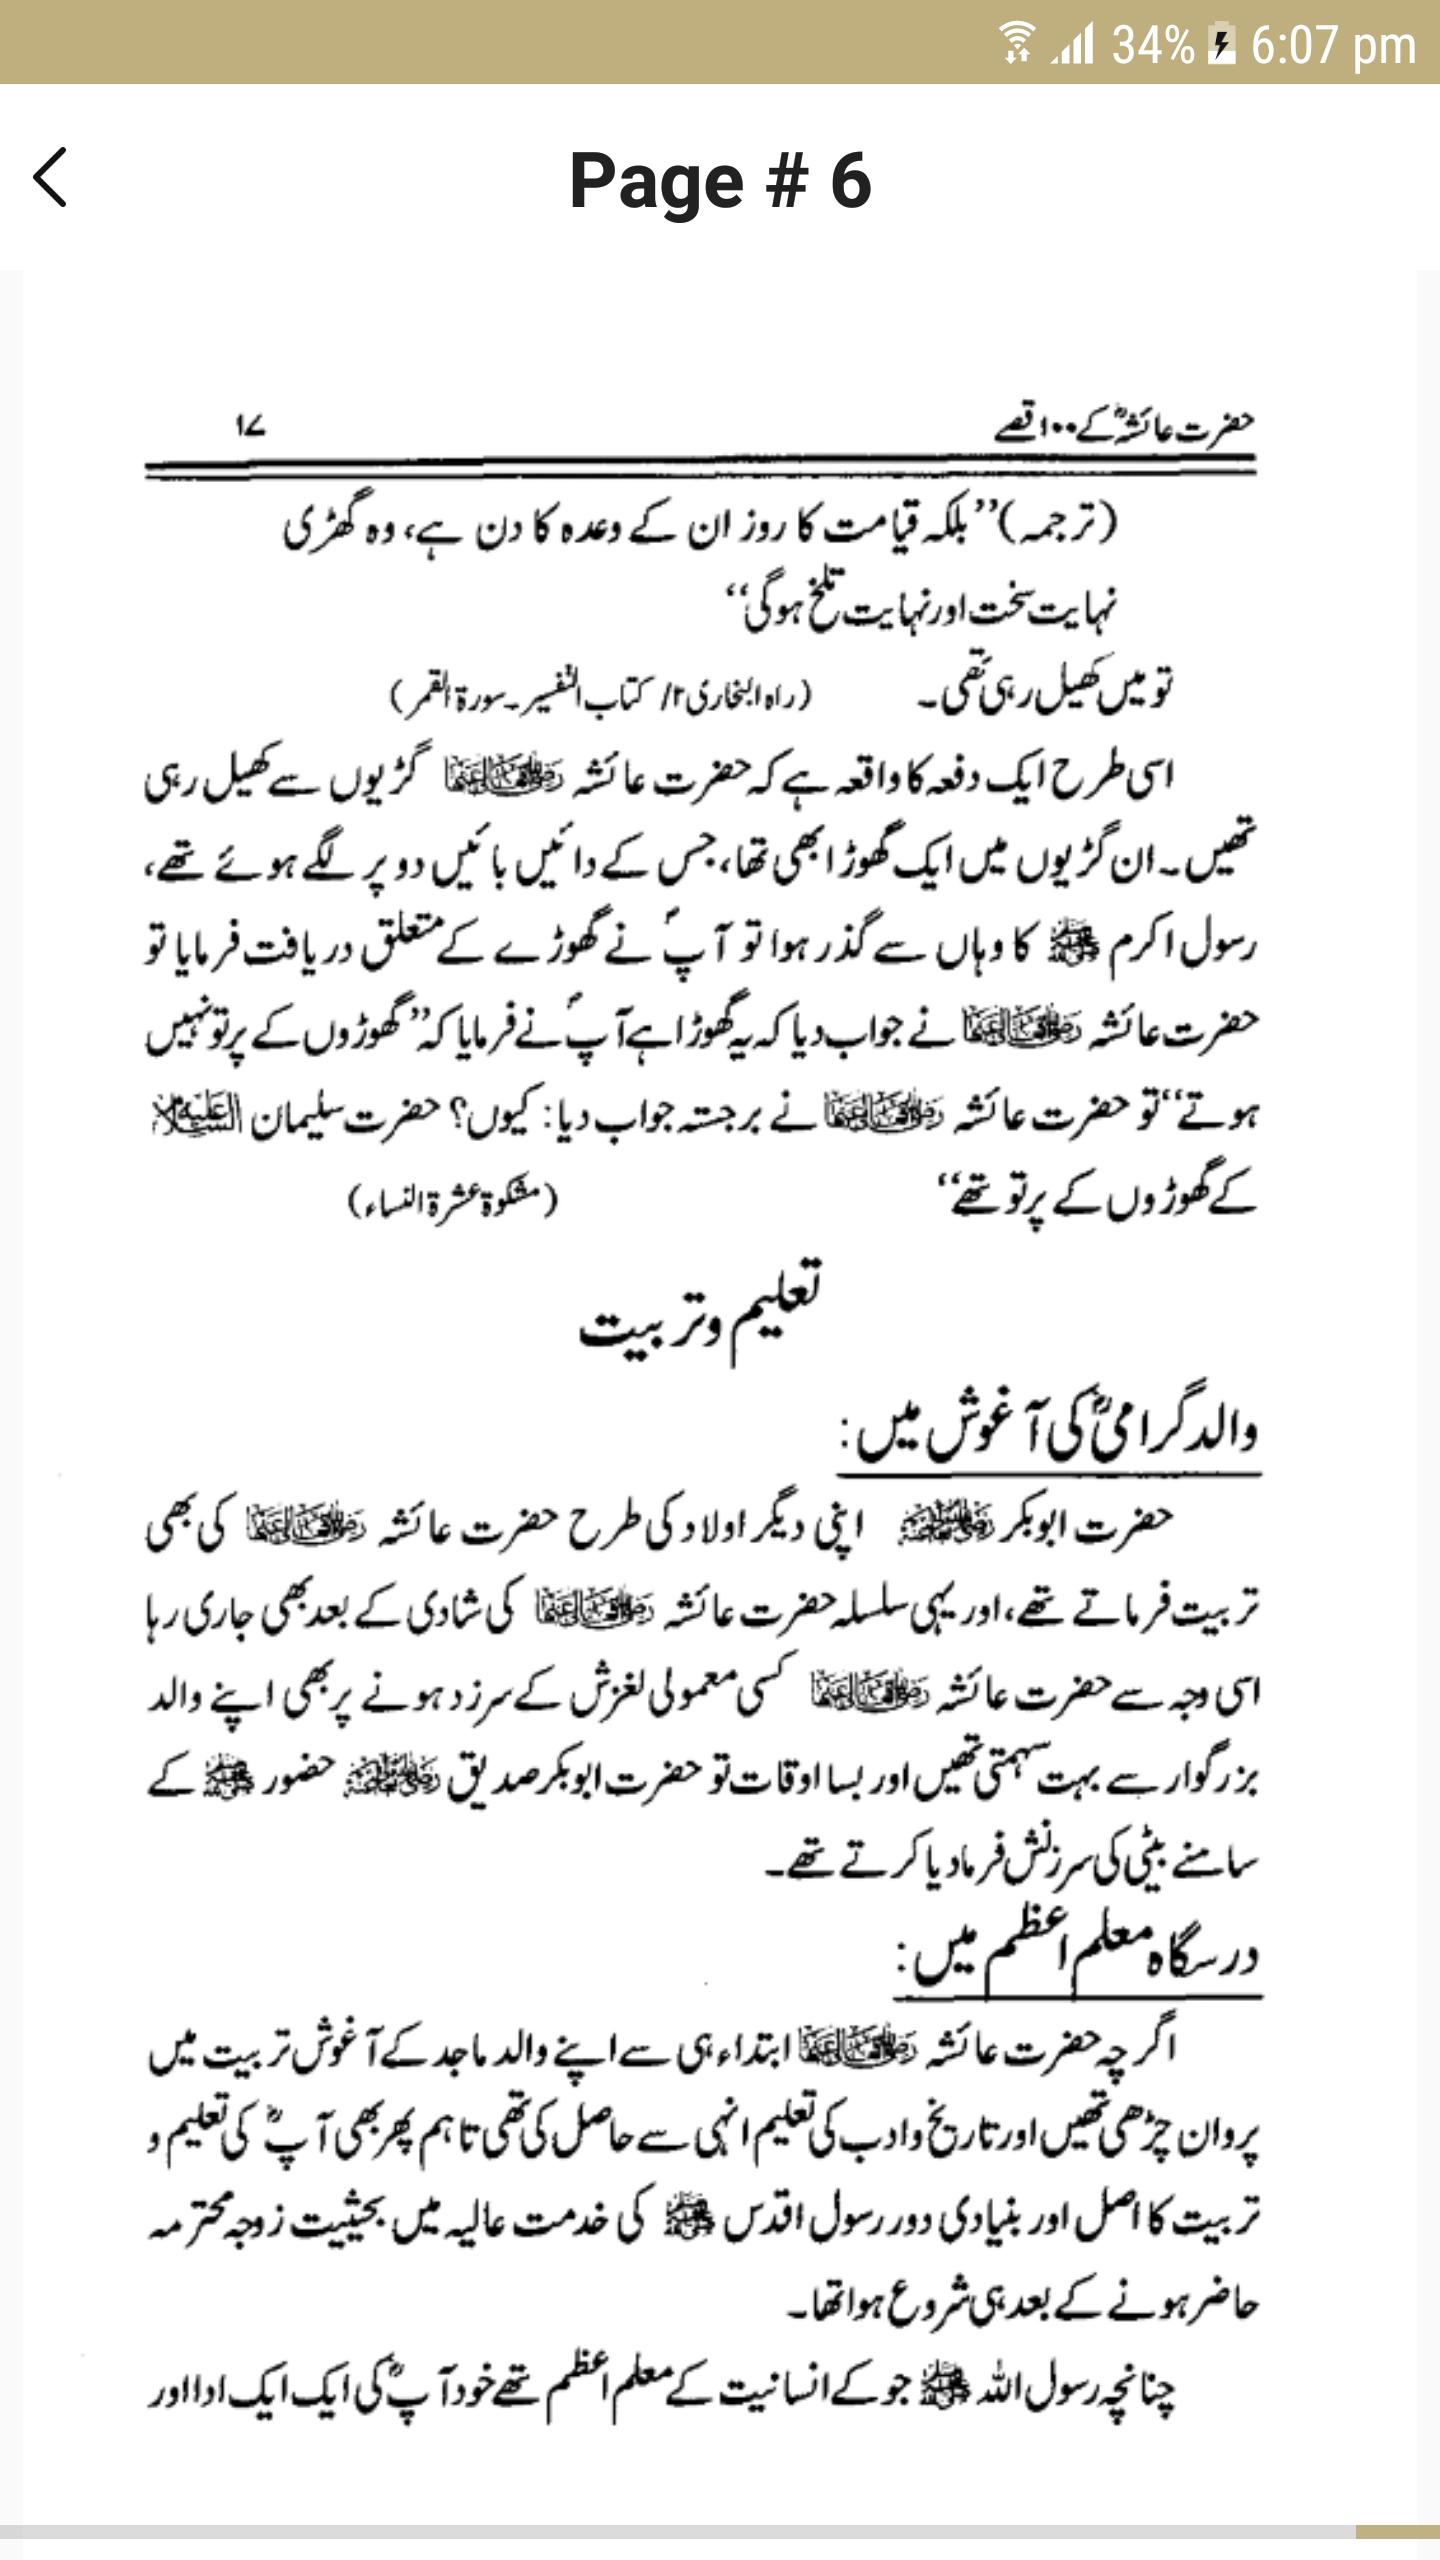 34% 6:07 pm
Page # 6
حضرت عائشہؓ کے ۱۰۰ قصے ۱۷
(ترجمہ) ’’بلکہ قیامت کا روز ان کے وعدہ کا دن ہے، وہ گھڑی
نہایت سخت اور نہایت تلخ ہوگی‘‘
تو میں کھیل رہی تھی۔ (راہ البخاری ۲/ کتاب التفسیر۔ سورۃ القمر)
اسی طرح ایک دفعہ کا واقعہ ہے کہ حضرت عائشہ رضی اللہ تعالیٰ عنہا گڑیوں سے کھیل رہی
تھیں۔ ان گڑیوں میں ایک گھوڑا بھی تھا، جس کے دائیں بائیں دو پر لگے ہوئے تھے،
رسول اکرم ﷺ کا وہاں سے گذر ہوا تو آپؐ نے گھوڑے کے متعلق دریافت فرمایا تو
حضرت عائشہ رضی اللہ تعالیٰ عنہا نے جواب دیا کہ یہ گھوڑا ہے آپؐ نے فرمایا کہ ’’گھوڑوں کے پر تو نہیں
ہوتے‘‘ تو حضرت عائشہ رضی اللہ تعالیٰ عنہا نے برجستہ جواب دیا: کیوں؟ حضرت سلیمان علیہ السلام
کے گھوڑوں کے پر تو تھے‘‘ (مشکوۃ عشرۃ النساء)
تعلیم و تربیت
والد گرامیؓ کی آغوش میں:
حضرت ابوبکر رضی اللہ تعالیٰ عنہ اپنی دیگر اولاد کی طرح حضرت عائشہ رضی اللہ تعالیٰ عنہا کی بھی
تربیت فرماتے تھے، اور یہی سلسلہ حضرت عائشہ رضی اللہ تعالیٰ عنہا کی شادی کے بعد بھی جاری رہا
اسی وجہ سے حضرت عائشہ رضی اللہ تعالیٰ عنہا کسی معمولی لغزش کے سرزد ہونے پر بھی اپنے والد
بزرگوار سے بہت سہمتی تھیں اور بسا اوقات تو حضرت ابوبکر صدیق رضی اللہ تعالیٰ عنہ حضور ﷺ کے
سامنے بیٹی کی سرزنش فرما دیا کرتے تھے۔
درسگاہ معلم اعظم میں:
اگرچہ حضرت عائشہ رضی اللہ تعالیٰ عنہا ابتداء ہی سے اپنے والد ماجد کے آغوش تربیت میں
پروان چڑھی تھیں اور تاریخ و ادب کی تعلیم انہی سے حاصل کی تھی تاہم پھر بھی آپؓ کی تعلیم و
تربیت کا اصل اور بنیادی دور رسول اقدس ﷺ کی خدمت عالیہ میں بحیثیت زوجہ محترمہ
حاضر ہونے کے بعد ہی شروع ہوا تھا۔
چنانچہ رسول اللہ ﷺ جو کے انسانیت کے معلم اعظم تھے خود آپؓ کی ایک ایک ادا اور